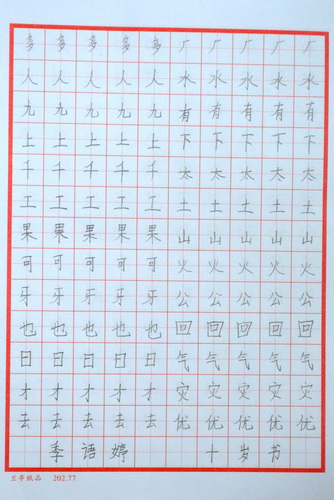 多多多多多厂厂厂厂厂
人人人人人水水水水水
九九九九九有有有有有
上上上上上下下下下下
千千千千千太太太太太
工工工工工土土土土土
果果果果果山山山山山
可可可可可火火火火火
牙牙牙牙牙公公公公公
也也也也也回回回回回
日日日日日气气气气气
才才才才才灾灾灾灾灾
去去去去去优优优优优
季语婷 十岁书
兰亭纸品 202.77